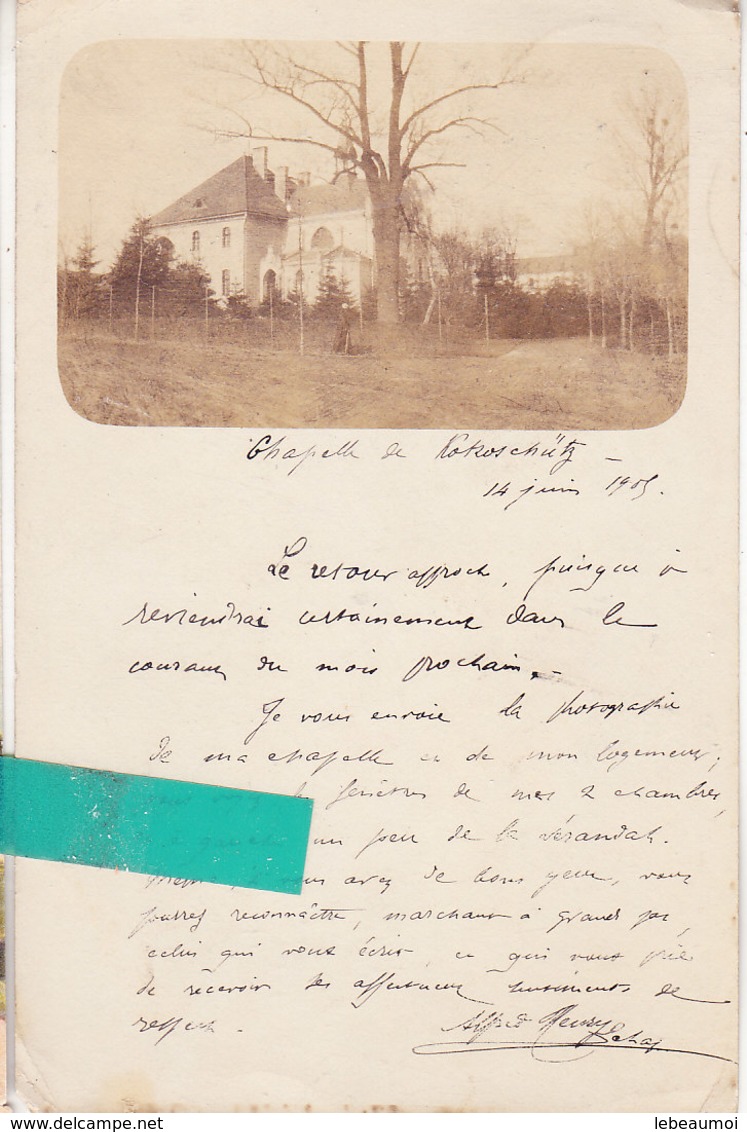 Chapelle de Kokoschütz -
14 juin 1905.
Le retour approche, puisque je
reviendrai certainement dans le
courant du mois prochain. -
Je vous envoie la photographie
de ma chapelle et de mon logement;
fenêtres de mes 2 chambres,
un peu de la vérandah.
si vous avez de bons yeux, vous
pourrez reconnaître, marchant à grands pas,
celui qui vous écrit, et qui vous prie
de recevoir les affectueux sentiments de
respect.
Alfred Henry
chap
lebeaumoi